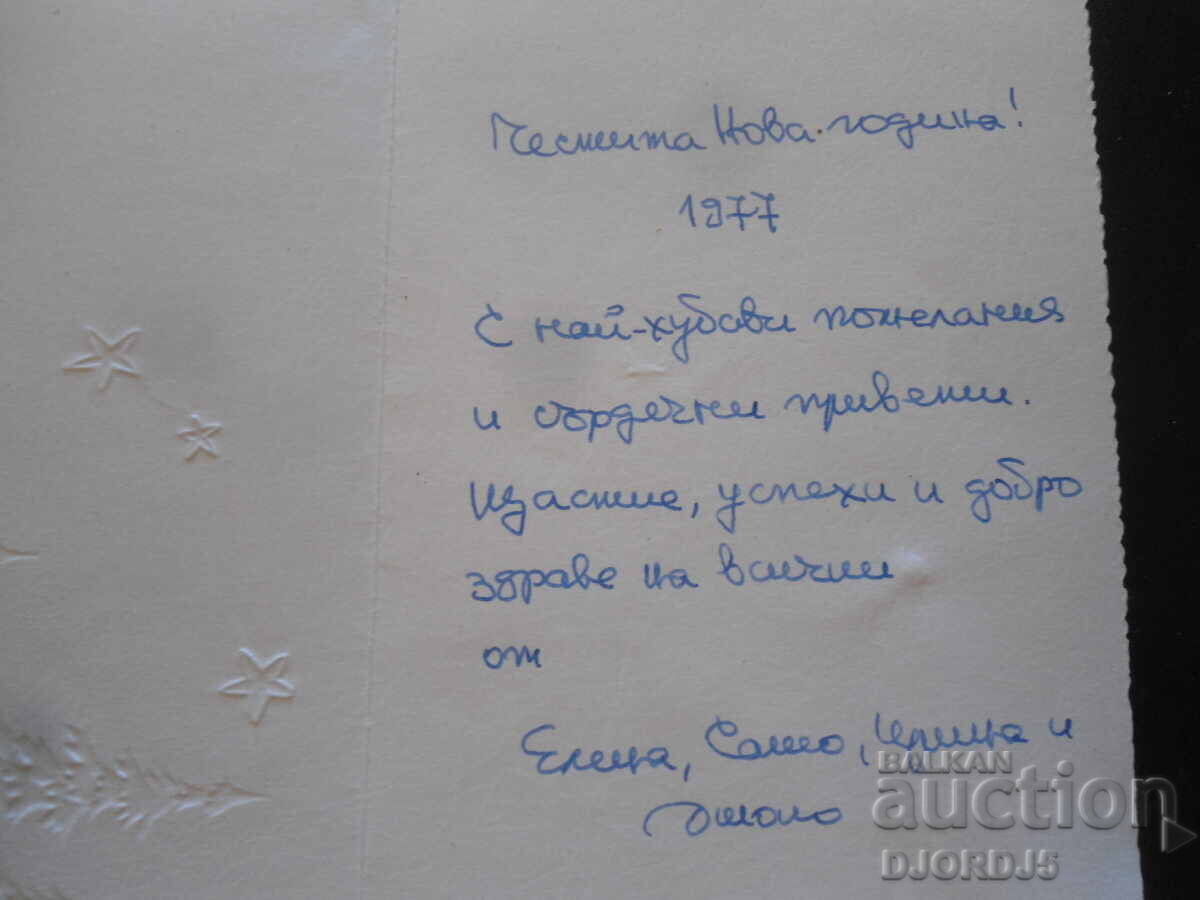 Честита Нова година!
1977
С най-хубави пожелания
и сърдечни привети.
Щастие, успехи и добро
здраве на всички
от
Елица, Сашо, и
BALKAN
auction
DJORDJ5